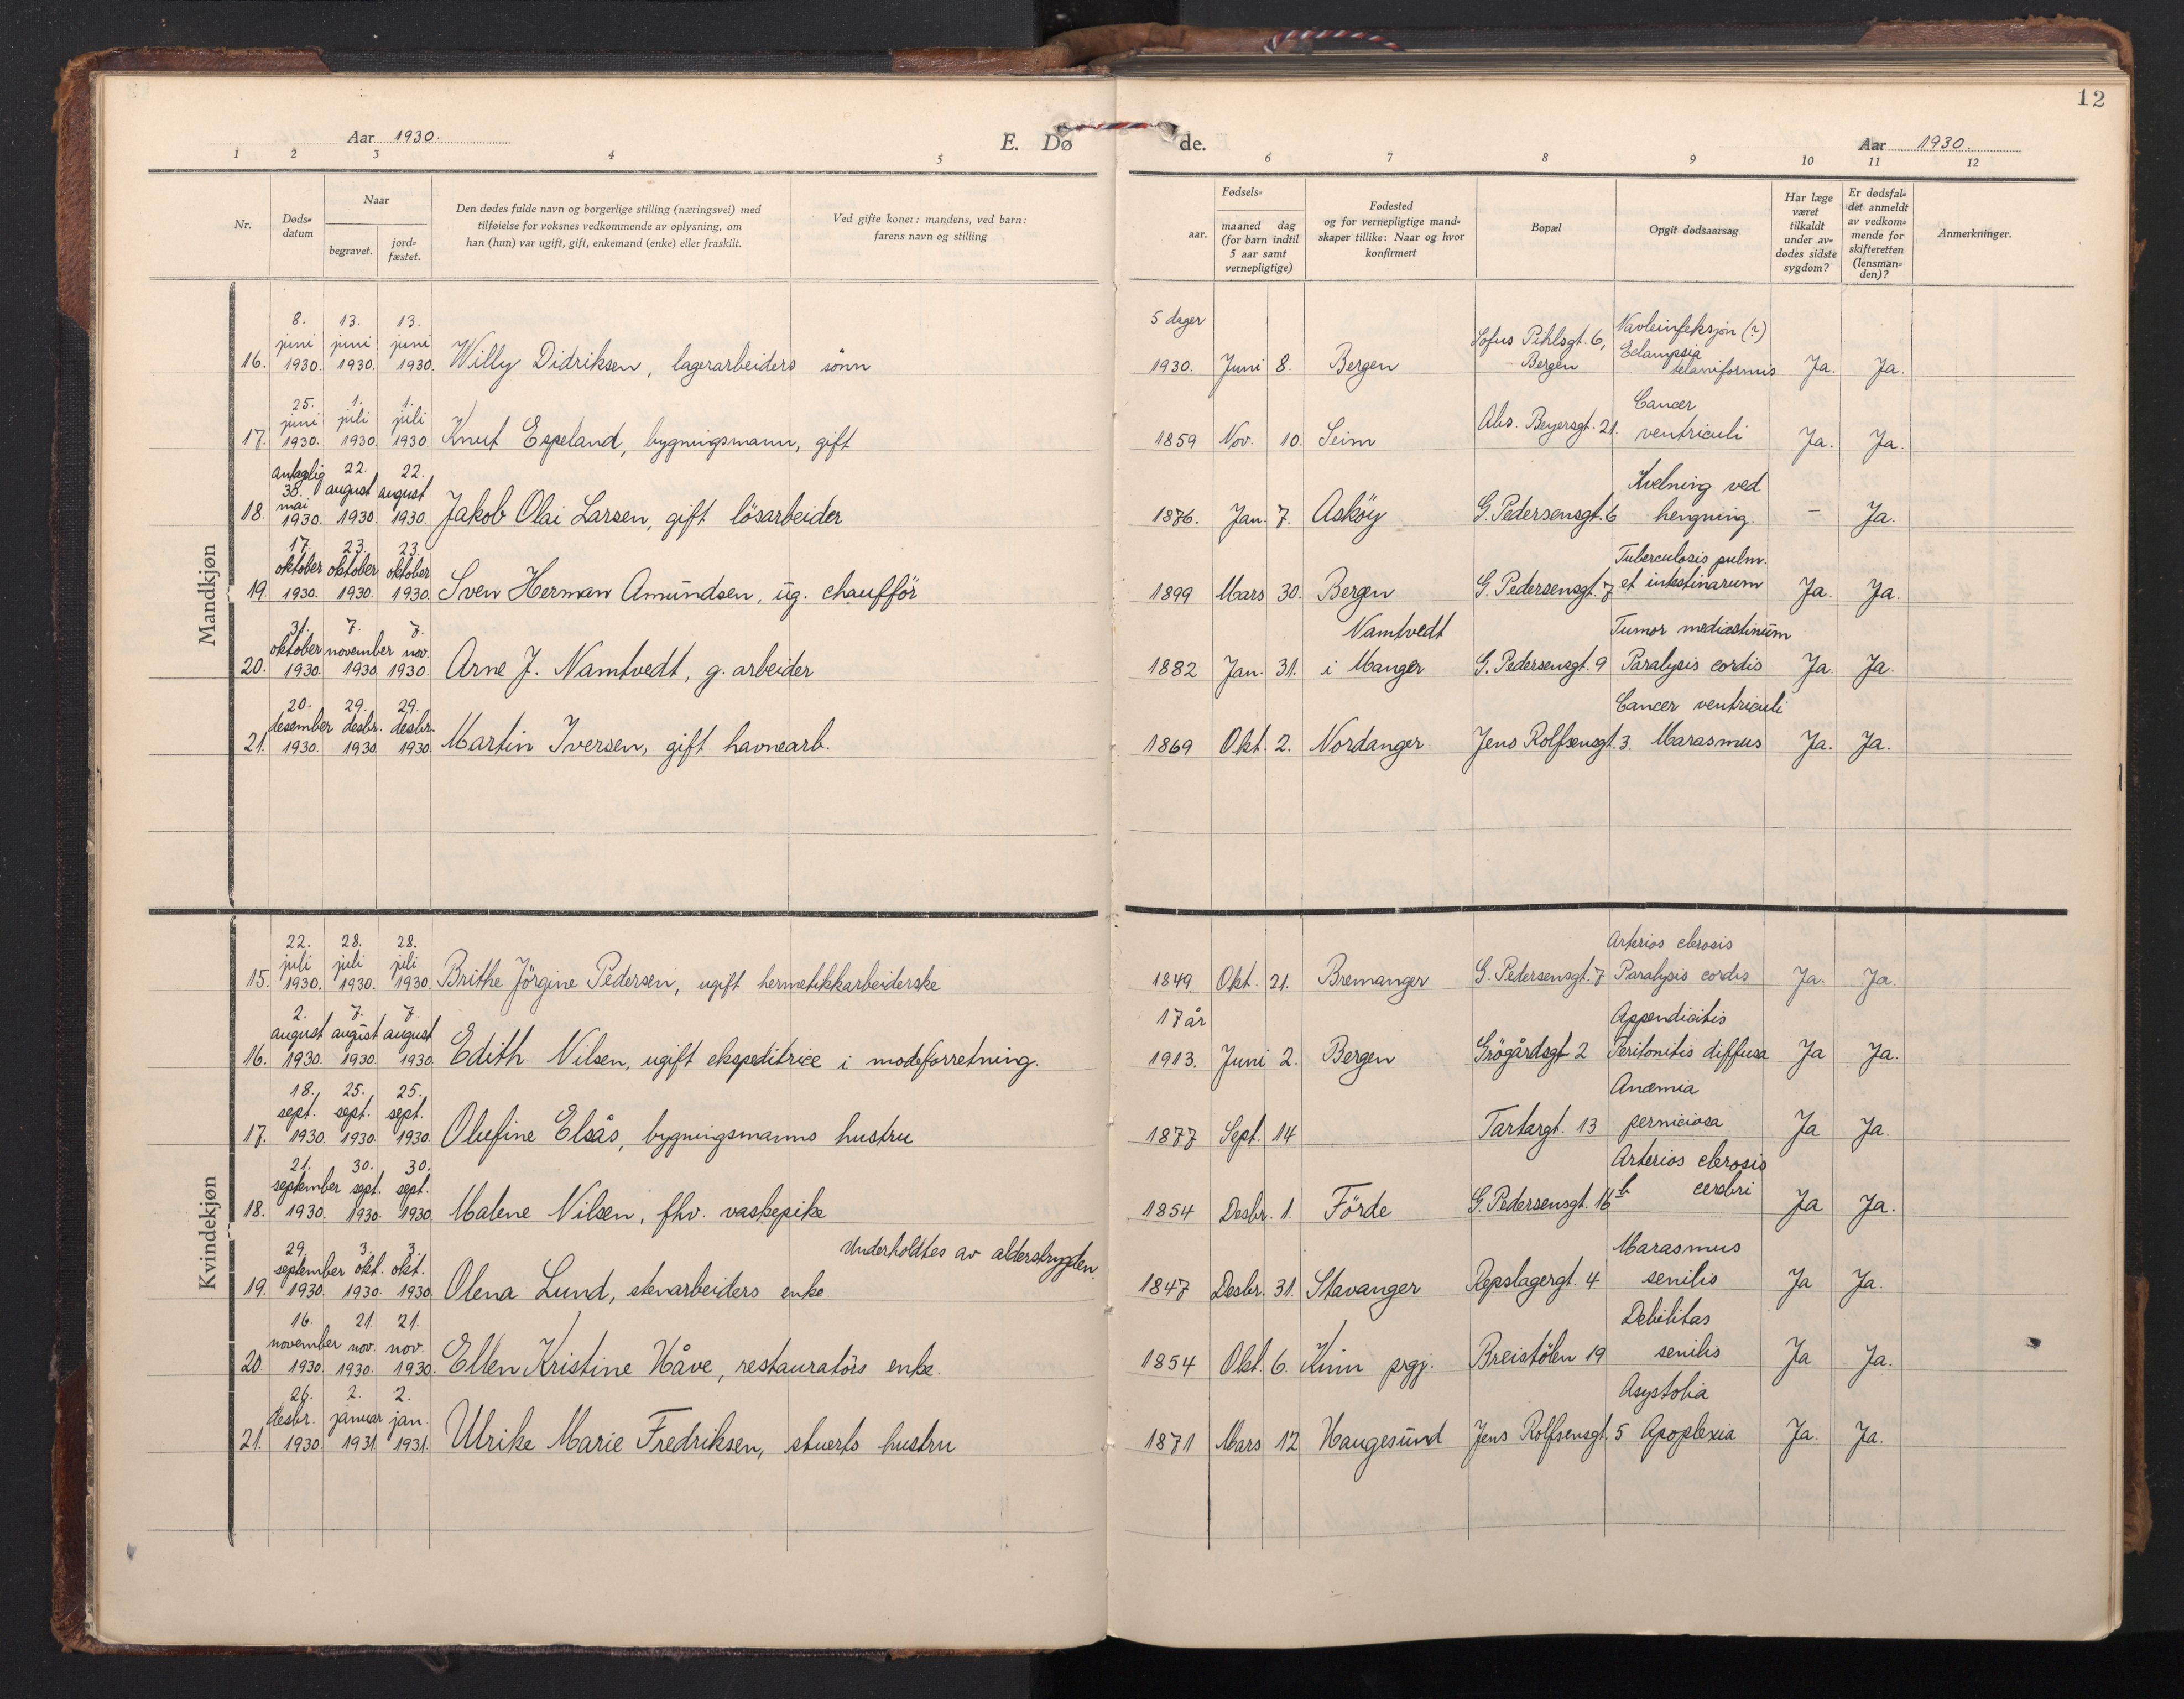 12
Aar 1930.
E. Døde.
Aar 1930.
1 2 3 4 5 6 7 8 9 10 11 12
Nr.
Døds-datum
Naar
begravet.
jord-fæstet.
Den dødes fulde navn og borgerlige stilling (næringsvei) med
tilføielse for voksnes vedkommende av oplysning, om
han (hun) var ugift, gift, enkemand (enke) eller fraskilt.
Ved gifte koner: mandens, ved barn:
farens navn og stilling
Fødsels-
aar.
maaned dag
(for barn indtil
5 aar samt
vernepligtige)
Fødested
og for vernepligtige mand-
skaper tillike: Naar og hvor
konfirmert
Bopæl
Opgit dødsaarsag
Har læge
været
tilkaldt
under av-
dødes sidste
sygdom?
Er dødsfal-
det anmeldt
av vedkom-
mende for
skifteretten
(lensman-
den)?
Anmerkninger.
Mandkjøn
16. 8. juni 1930. 13. juni 1930. 13. juni 1930. Willy Didriksen, lagerarbeiders sönn 5 dager 1930. Juni 8. Bergen Sofus Pihlsgt. 6, Bergen Navleinfeksjon (?) Eclampsia Ja. Ja.
17. 25. juni 1930. 1. juli 1930. 1. juli 1930. Knut Espeland, bygningsmann, gift 1859 Nov. 10. Seim Abs. Beyersgt. 21. Cancer ventriculi Ja. Ja.
18. antaglig 30. mai 1930. 22. august 1930. 22. august 1930. Jakob Olai Larsen, gift lösarbeider 1876. Jan. 7. Asköy G. Pedersensgt. 6 Kvelning ved hengning. – Ja.
19. 17. oktober 1930. 23. oktober 1930. 23. oktober 1930. Sven Herman Amundsen, ug. chaufför 1899 Mars 30. Bergen G. Pedersensgt. 7 Tuberculosis pulm. et intestinarum Ja. Ja.
20. 31. oktober 1930. 7. november 1930. 7. nov. 1930. Arne J. Namtvedt, g. arbeider 1882 Jan. 31. Namtvedt i Manger G. Pedersensgt. 9 Tumor mediastinum Paralysis cordis Ja. Ja.
21. 20. desember 1930. 29. desbr. 1930. 29. desbr. 1930. Martin Iversen, gift havnearb. 1869 Okt. 2. Nordanger Jens Rolfsensgt. 3. Cancer ventriculi Marasmus Ja. Ja.
Kvindekjøn
15. 22. juli 1930. 28. juli 1930. 28. juli 1930. Brithe Jörgine Pedersen, ugift hermetikkarbeiderske 1849 Okt. 21. Bremanger G. Pedersensgt. 7 Arterios clerosis Paralysis cordis Ja. Ja.
16. 2. august 1930. 7. august 1930. 7. august 1930 Edith Nilsen, ugift ekspeditrice i modeforretning. 17 år 1913. Juni 2. Bergen Grögårdsgt 2 Appendicitis Peritonitis diffusa Ja Ja.
17. 18. sept. 1930. 25. sept. 1930. 25. sept. 1930. Olufine Elsås, bygningsmanns hustru 1877 Sept. 14 Tartargt. 13 Anæmia perniciosa Ja Ja.
18. 21. september 1930. 30. sept. 1930. 30. sept. 1930. Malene Nilsen, fhv. vaskepike 1854 Desbr. 1. Förde G. Pedersensgt. 16 b Arterios clerosis cerebri Ja Ja.
19. 29. september 1930. 3. okt. 1930. 3. okt. 1930. Olena Lund, stenarbeiders enke. Underholdtes av alderstrygden. 1847 Desbr. 31. Stavanger Repslagergt. 4 Marasmus senilis Ja Ja.
20. 16. november 1930. 21. nov. 1930. 21. nov. 1930. Ellen Kristine Håve, restauratörs enke. 1854 Okt. 6. Kinn prgj. Breistölen 19 Debilitas senilis Ja Ja.
21. 26. desbr. 1930. 2. januar 1931. 2. jan. 1931. Ulrike Marie Fredriksen, stuerts hustru 1871 Mars 12 Haugesund Jens Rolfsensgt. 5 Asystolia Apoplexia Ja. Ja.